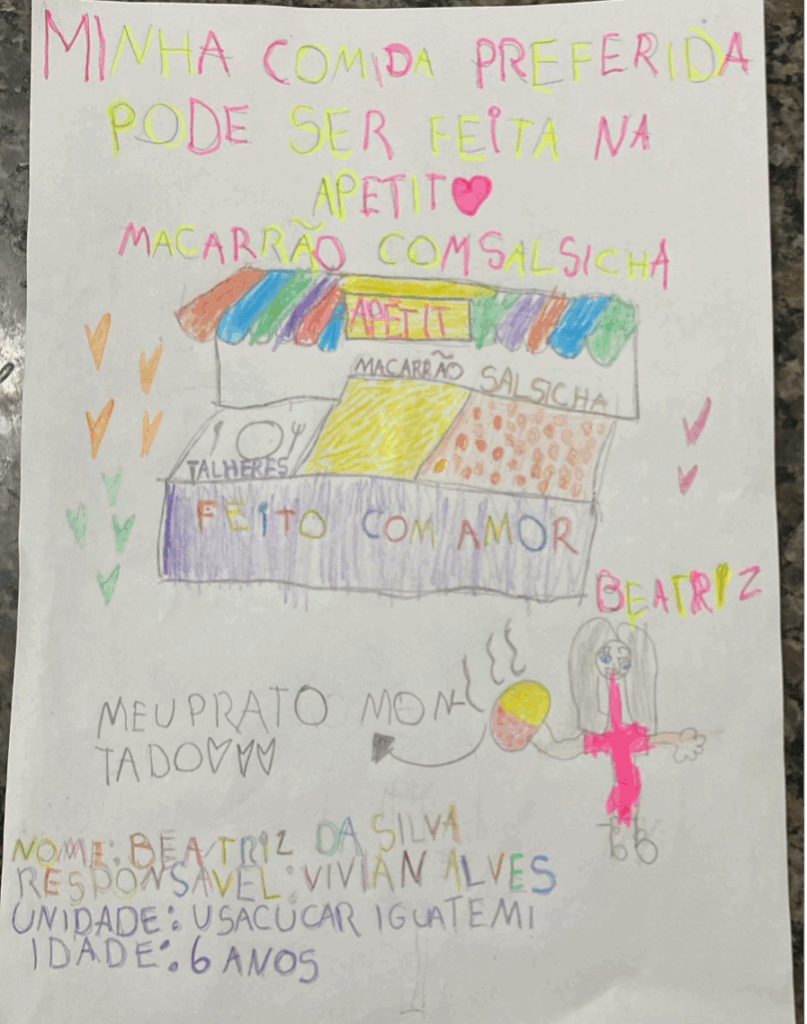 MINHA COMIDA PREFERIDA
PODE SER FEITA NA
APETIT
MACARRÃO COM SALSICHA
APETIT
MACARRÃO SALSICHA
TALHERES
FEITO COM AMOR
BEATRIZ
MEU PRATO MON-
TADO
NOME: BEATRIZ DA SILVA
RESPONSAVEL: VIVIAN ALVES
UNIDADE: USACUCAR IGUATEMI
IDADE: 6 ANOS